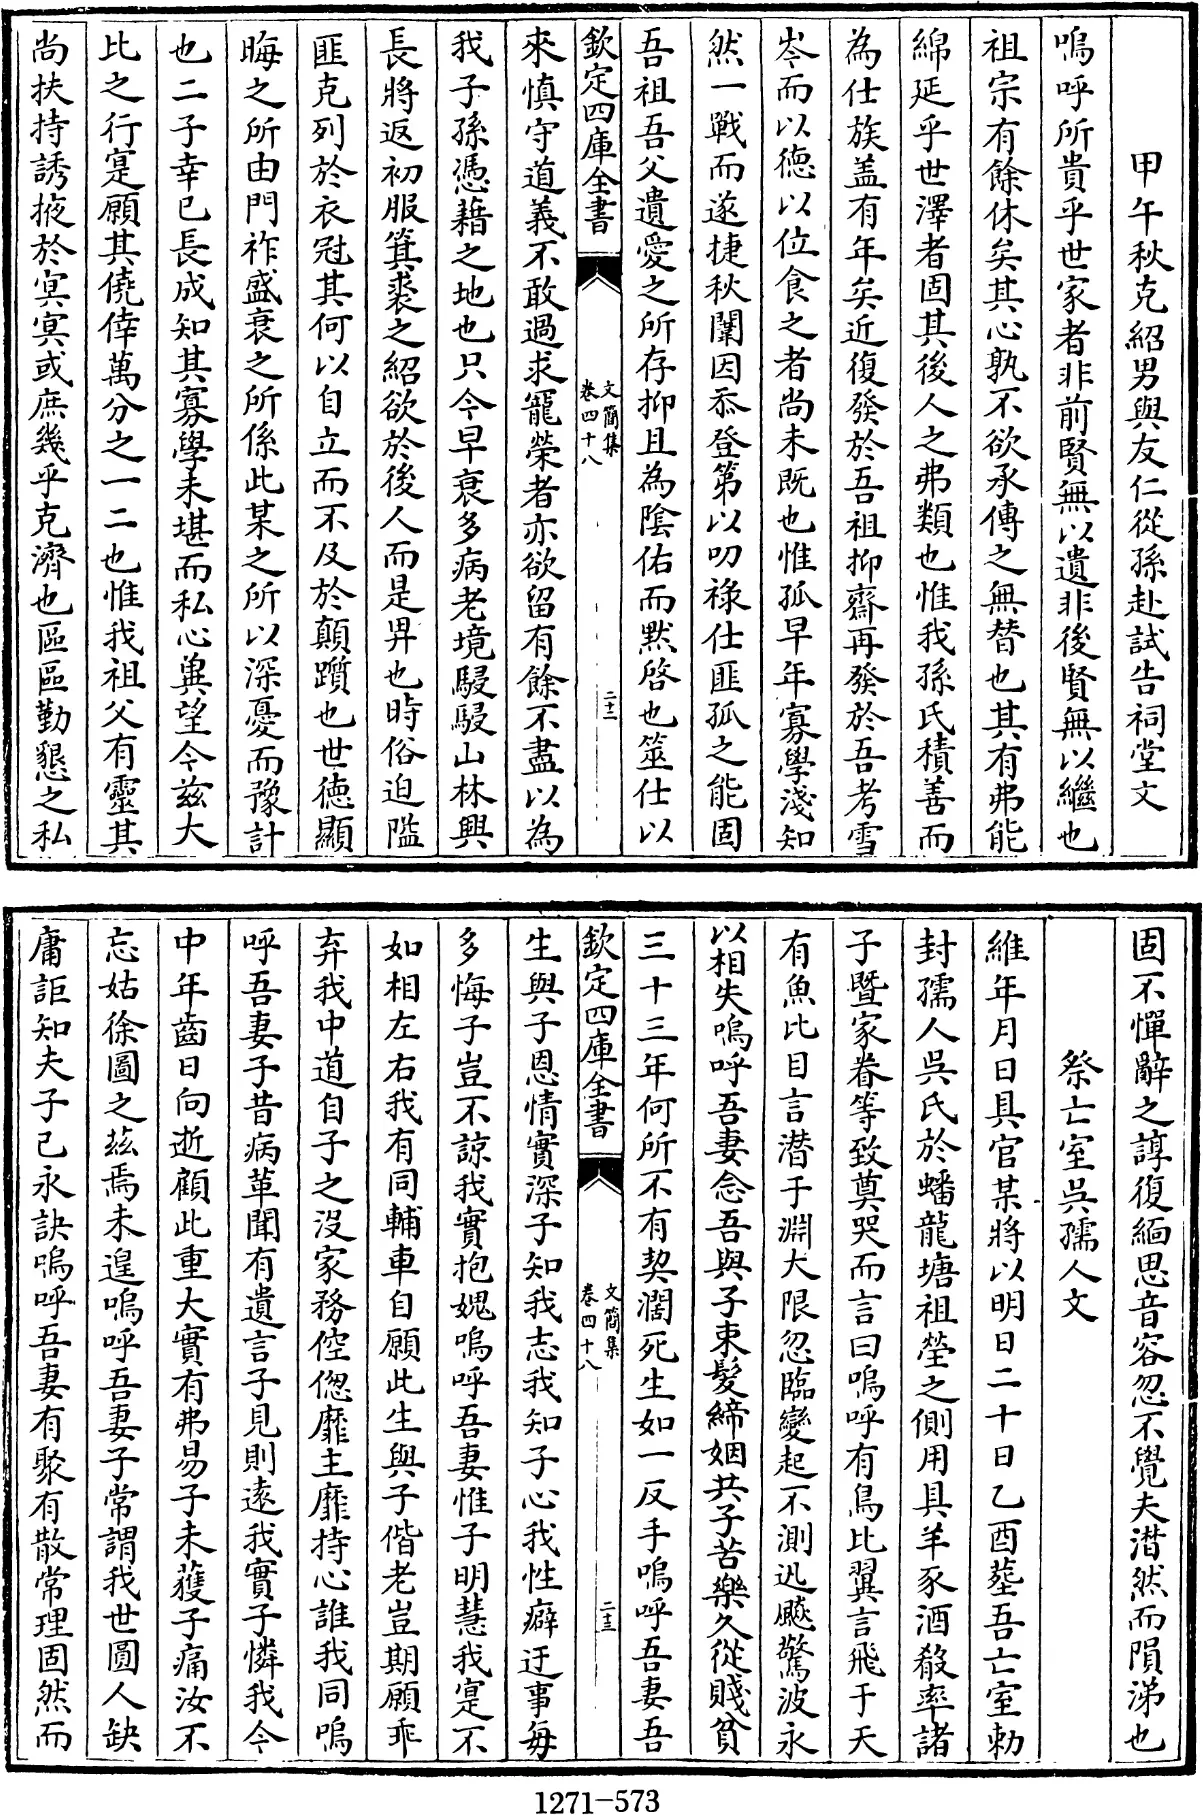 甲午秋克紹男與友仁從孫赴試告祠堂文
嗚呼所貴乎世家者非前賢無以遺非後賢無以繼也
祖宗有餘休矣其心孰不欲承傳之無替也其有弗能
綿延乎世澤者固其後人之弗類也惟我孫氏積善而
為仕族盖有年矣近復發於吾祖抑齋再發於吾考雪
岑而以徳以位食之者尚未既也惟孤早年寡學淺知
然一戰而遂捷秋闈因忝登第以叨祿仕匪孤之能固
吾祖吾父遺愛之所存抑且為陰佑而黙啓也筮仕以
欽定四庫全書
文簡集
卷四十八
二十二
來慎守道義不敢過求寵榮者亦欲留有餘不盡以為
我子孫憑藉之地也只今早衰多病老境駸駸山林興
長將返初服箕裘之紹欲於後人而是畀也時俗迫隘
匪克列於衣冠其何以自立而不及於顛躓也世徳顯
晦之所由門祚盛衰之所係此某之所以深憂而豫計
也二子幸已長成知其寡學未堪而私心兾望今兹大
比之行寔願其僥倖萬分之一二也惟我祖父有靈其
尚扶持誘掖於冥冥或庶幾乎克濟也區區勤懇之私
固不憚辭之諄復緬思音容忽不覺夫潸然而隕涕也
祭亡室吳孺人文
維年月日具官某將以明日二十日乙酉塟吾亡室勅
封孺人吳氏於蟠龍塘祖塋之側用具羊豕酒殽率諸
子暨家眷等致奠哭而言曰嗚呼有鳥比翼言飛于天
有魚比目言潜于淵大限忽臨變起不測迅飈驚波永
以相失嗚呼吾妻念吾與子束髮締姻共子苦樂久從賤貧
三十三年何所不有契濶死生如一反手嗚呼吾妻吾
欽定四庫全書
文簡集
卷四十八
二十三
生與子恩情實深子知我志我知子心我性癖迂事每
多悔子豈不諒我實抱媿嗚呼吾妻惟子明慧我寔不
如相左右我有同輔車自願此生與子偕老豈期願乖
弃我中道自子之沒家務倥偬靡主靡持心誰我同嗚
呼吾妻子昔病革聞有遺言子見則遠我實子憐我今
中年齒日向逝顧此重大實有弗易子未蘐子痛汝不
忘姑徐圖之茲焉未遑嗚呼吾妻子常謂我世圓人缺
庸詎知夫子已永訣嗚呼吾妻有聚有散常理固然而
1271-573